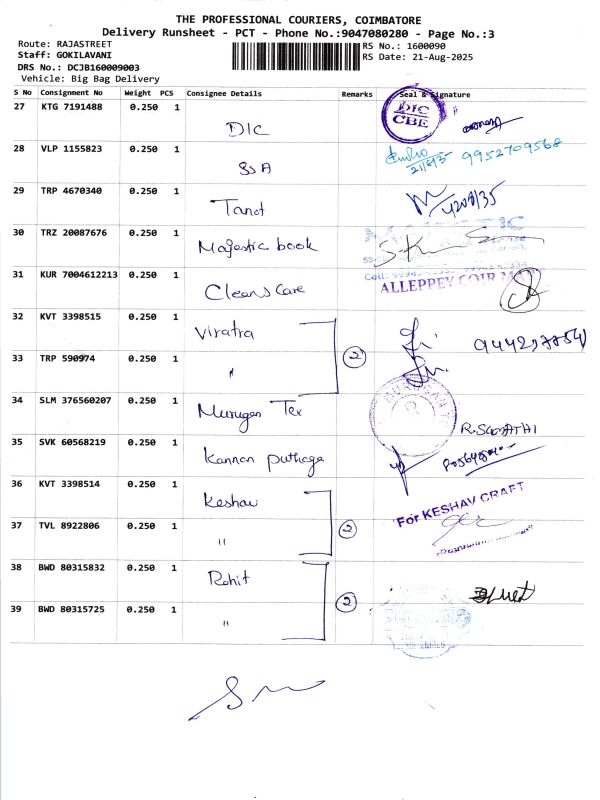 THE PROFESSIONAL COURIERS, COIMBATORE
Delivery Runsheet - PCT - Phone No.:9047080280 - Page No.:3
Route: RAJASTREET
RS No.: 1600090
Staff: GOKILAVANI
RS Date: 21-Aug-2025
DRS No.: DCJB160009003
Vehicle: Big Bag Delivery
S No Consignment No Weight PCS Consignee Details Remarks Seal & Signature
27 KTG 7191488 0.250 1 DIC
DIC
CBE
28 VLP 1155823 0.250 1 SSA
21/8/25 9952709568
29 TRP 4670340 0.250 1 Tanot
30 TRZ 20087676 0.250 1 Majestic book
31 KUR 7004612213 0.250 1 Cleans Care
ALLEPPEY COIR MAT
32 KVT 3398515 0.250 1 Viratra
33 TRP 590974 0.250 1 "
2
34 SLM 376560207 0.250 1 Murugan Tex
35 SVK 60568219 0.250 1 Kannan puthaga
36 KVT 3398514 0.250 1 Keshav
For KESHAV CRAFT
37 TVL 8922806 0.250 1 "
2
38 BWD 80315832 0.250 1 Rohit
39 BWD 80315725 0.250 1 "
2